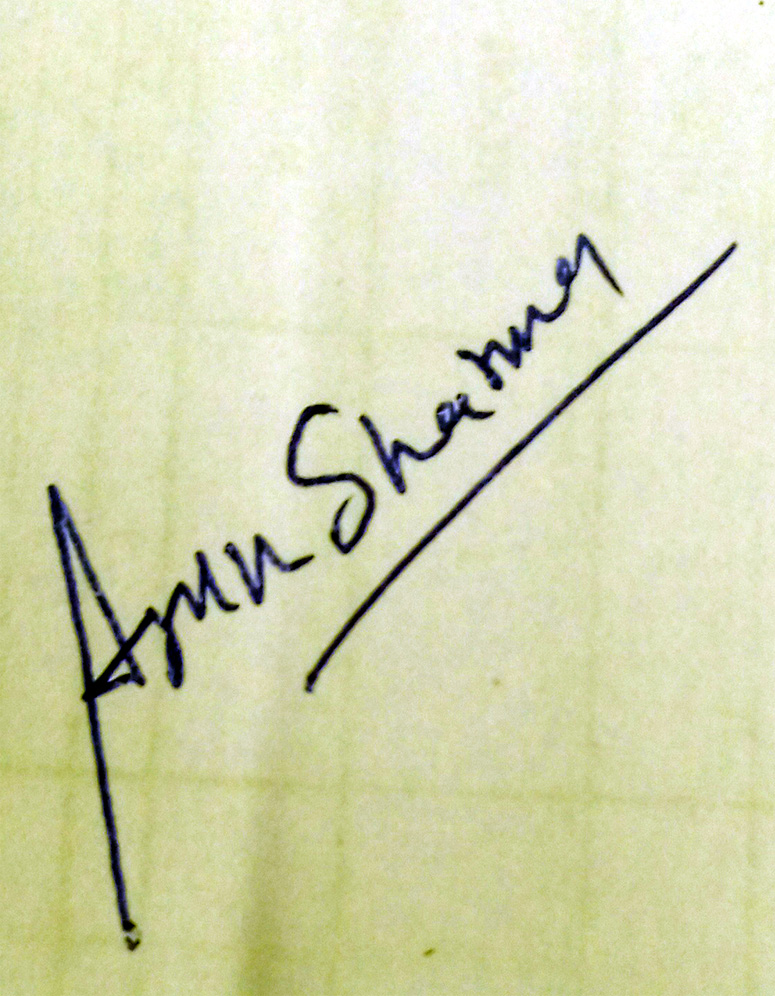 Arun Sharma